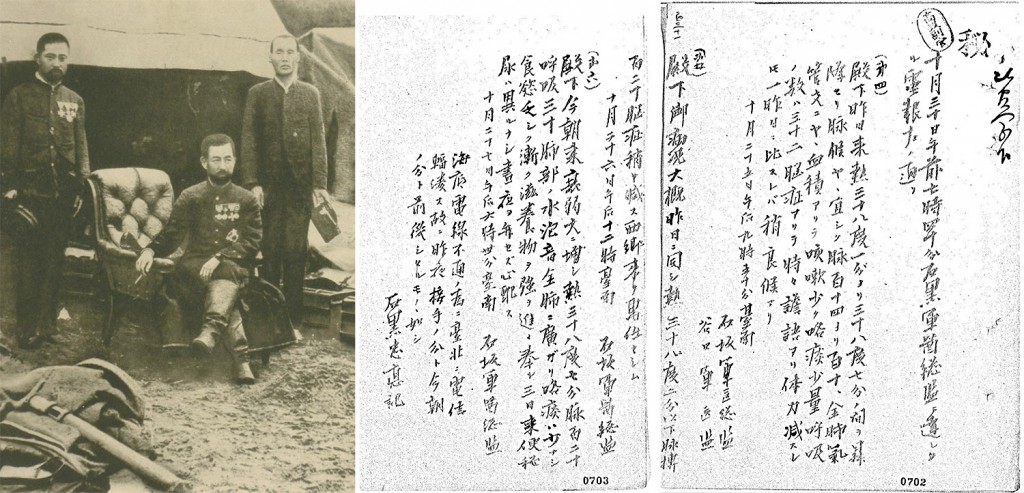 秘
十月三十日午前七時四十分石黒軍醫総監ヨリ達シタ
ル電報左ノ通リ
(第四)
殿下昨日来熱三十八度一分ヨリ三十八度七分ノ間ヲ昇
降セリ脉候ヤヽ宜シク脉百十四ヨリ百二十、全肺氣
管支ニヤヽ血積アリテ咳嗽少ク咯痰少量呼吸
ノ数ハ三十二脳症アリテ時々譫語アリ体力減スレ
モ一昨日ニ比スレバ稍良候ナリ
十月二十五日午后九時五十分臺南
石坂軍医総監
谷口軍医監
(第五)
殿下御病況大概昨日ニ同シ熱三十八度二分以下脉搏
0702
百二十脳症稍ヤ減ス西郷来リ
十月二十六日午后十二時臺南 石坂軍醫総監
(第六)
殿下今朝来衰弱大ニ増シ熱三十八度七分脉百二十
呼吸三十肺部ノ水泡音全肺ニ廣ガリ咯痰ハ少ナシ
食慾乏シク漸ク滋養物ヲ強ヒ進メ奉ル三日来便秘
尿ハ異ルナシ 心配ス
十月二十七日午后六時廿分臺南 石坂軍醫総監
海底電線不通ノ為ニ臺北ニ電信
輻湊ス故ニ昨夜接手ノ分ト今朝
ノ分ト前後シタルモノヽ如シ
石黒忠悳記
0703